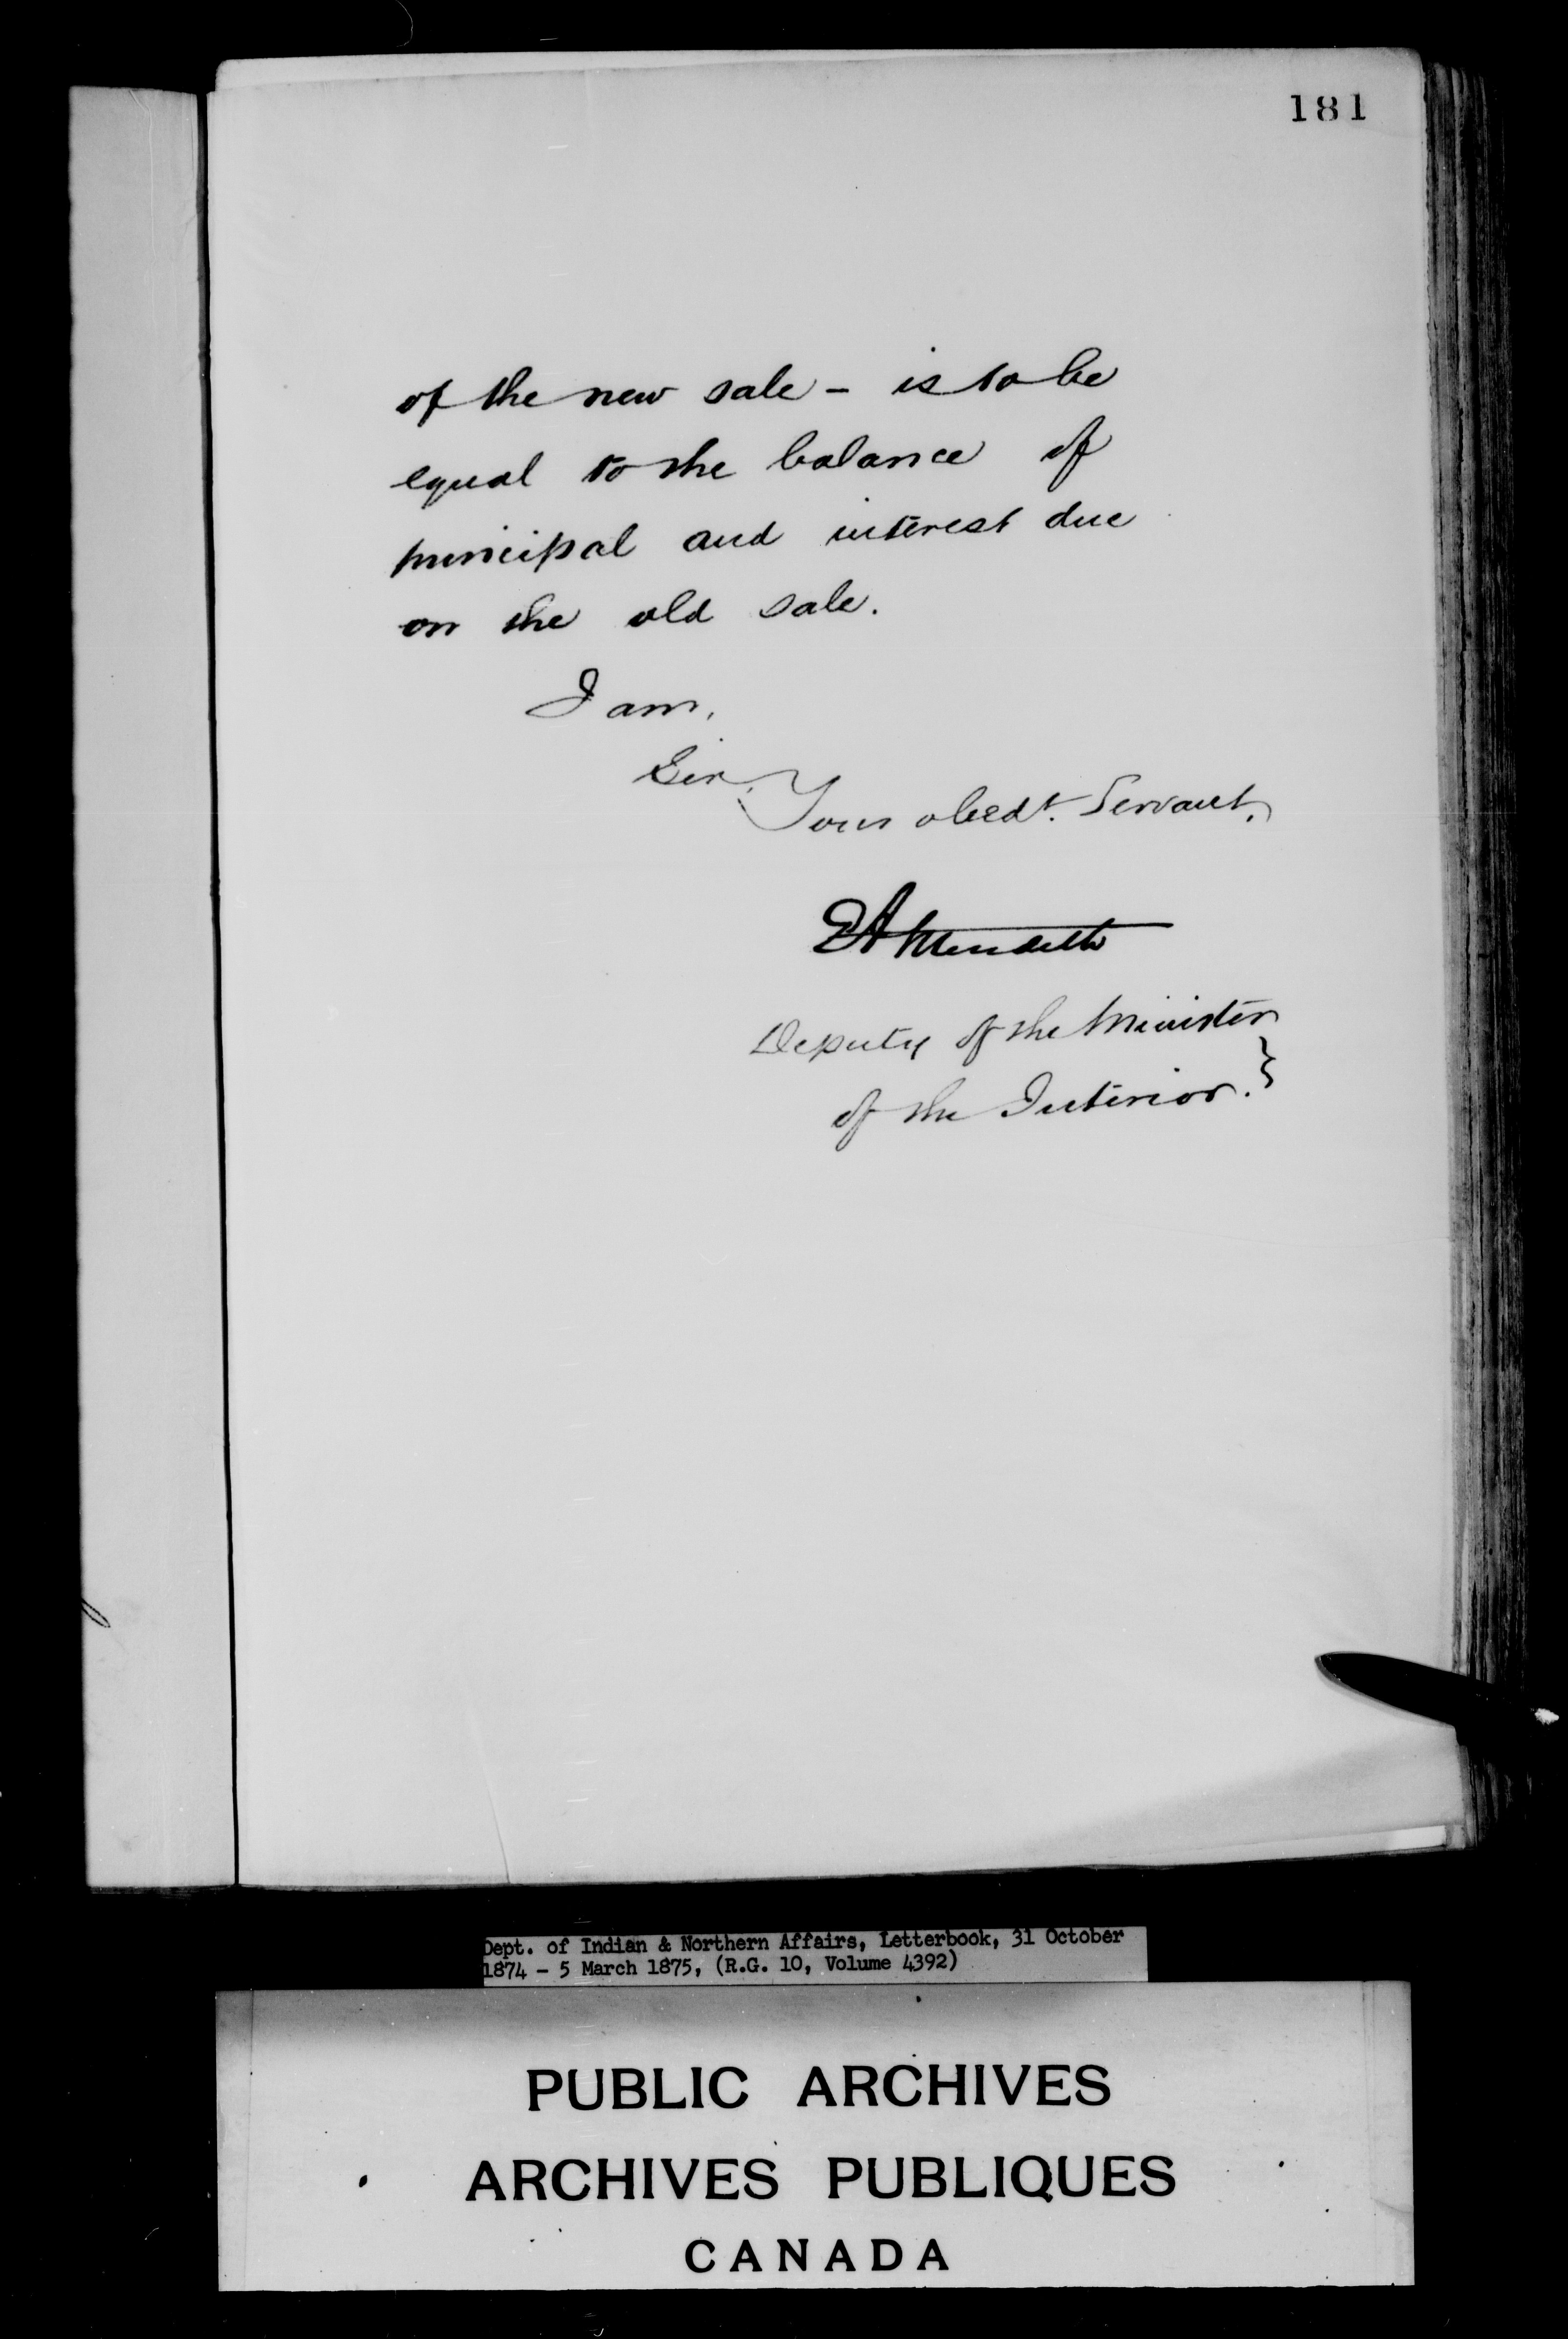 181
of the new sale - is to be
equal to the balance of
principal and interest due
on the old sale.
I am,
Sir,
Your obedt. Servant,
EA Meredith
Deputy of the Minister
of the Interior. }
Dept. of Indian & Northern Affairs, Letterbook, 31 October
1874 - 5 March 1875, (R.G. 10, Volume 4392)
PUBLIC ARCHIVES
ARCHIVES PUBLIQUES
CANADA